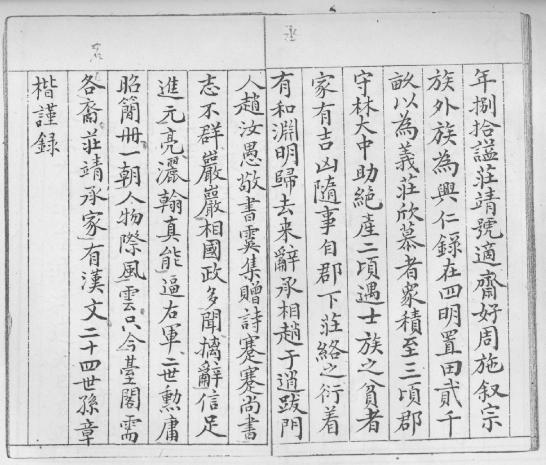 年捌拾諡莊靖號適齋好周施叙宗
族外族為興仁錄在四明置田貳千
畝以為義莊欣慕者眾積至三頃郡
守林大中助絶產二頃遇士族之貧者
家有吉凶隨事自郡下莊給之衍着
有和淵明歸去来辭承相趙于逍跋門
人趙汝愚敬書虞集贈詩蹇蹇尚書
志不群巖巖相國政多聞摛辭信足
進元亮灑翰真能逼右軍二世勲庸
昭簡冊一朝人物際風雲只今臺閣需
各裔莊靖承家有漢文二十四世孫章
楷謹録